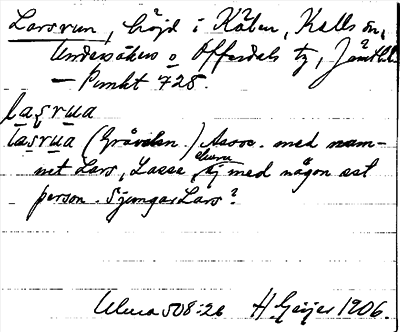 Larsrun, höjd i Kölen, Kalls sn,
Undersåkers o Offerdals tg, Jämtl.
— Punkt 728.
lasrua
lasrua (Gråvolen.) Assoc. med nam-
net Lars, Lasse, ej med någon sst
person. Sjungar Lars?
Ulma 508:26 H. Geijer 1906.